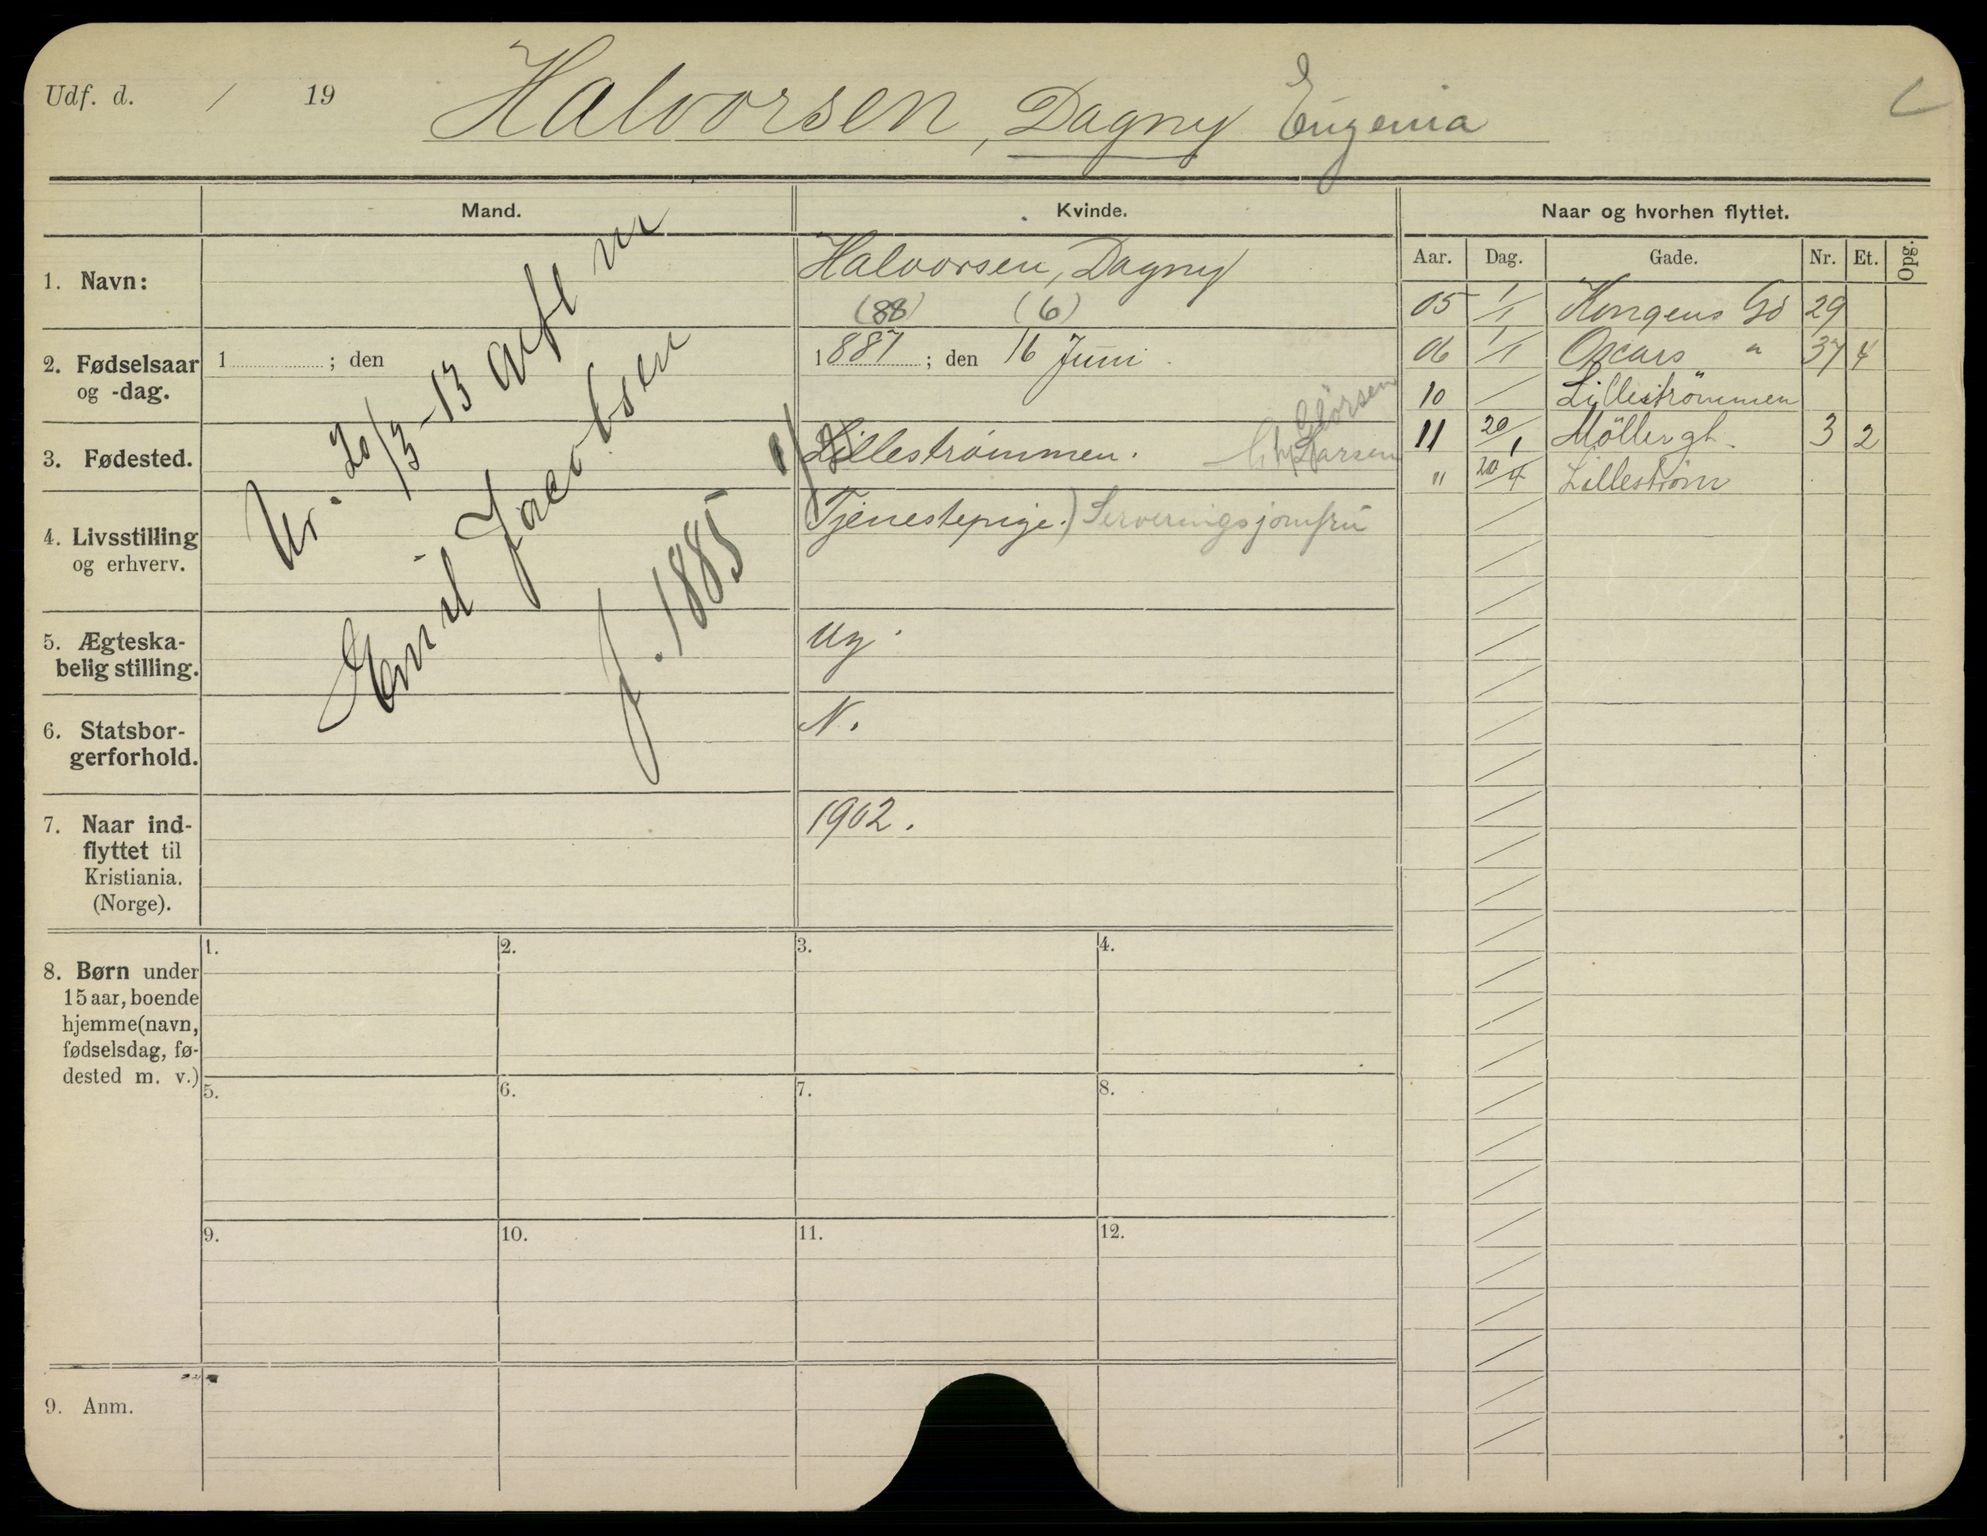 Udf. d. / 19
Halvorsen, Dagny Eugenia
Mand.
Kvinde.
Naar og hvorhen flyttet.
Aar. Dag. Gade. Nr. Et. Opg.
1. Navn:
Halvorsen, Dagny
(88) (6)
2. Fødselsaar
og -dag.
1 ; den
1887 ; den 16 Juni
3. Fødested.
Lillestrømmen.
Larsen
4. Livsstilling
og erhverv.
Tjenestepige.) Serveringsjomfru
5. Ægteska-
belig stilling.
ug.
6. Statsbor-
gerforhold.
N.
7. Naar ind-
flyttet til
Kristiania.
(Norge).
1902.
20/3-13
Emil Jacobsen
f. 1885
05 1/1 Kongens Gd 29
06 1/1 Oscars " 37 4
10 / Lillestrømmen
11 20/1 Møllergt. 3 2
" 20/4 Lillestrøm
8. Børn under
15 aar, boende
hjemme (navn,
fødselsdag, fø-
dested m. v.)
1. 2. 3. 4.
5. 6. 7. 8.
9. 10. 11. 12.
9. Anm.